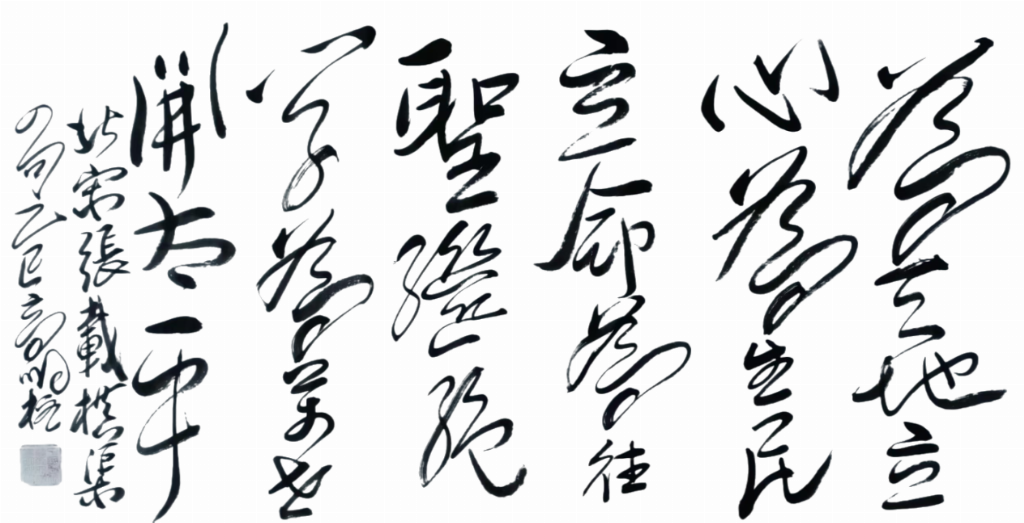 為天地立
心為生民
立命為往
聖繼絕
學為萬世
開太平
北宋張載橫渠
四句乙巳高